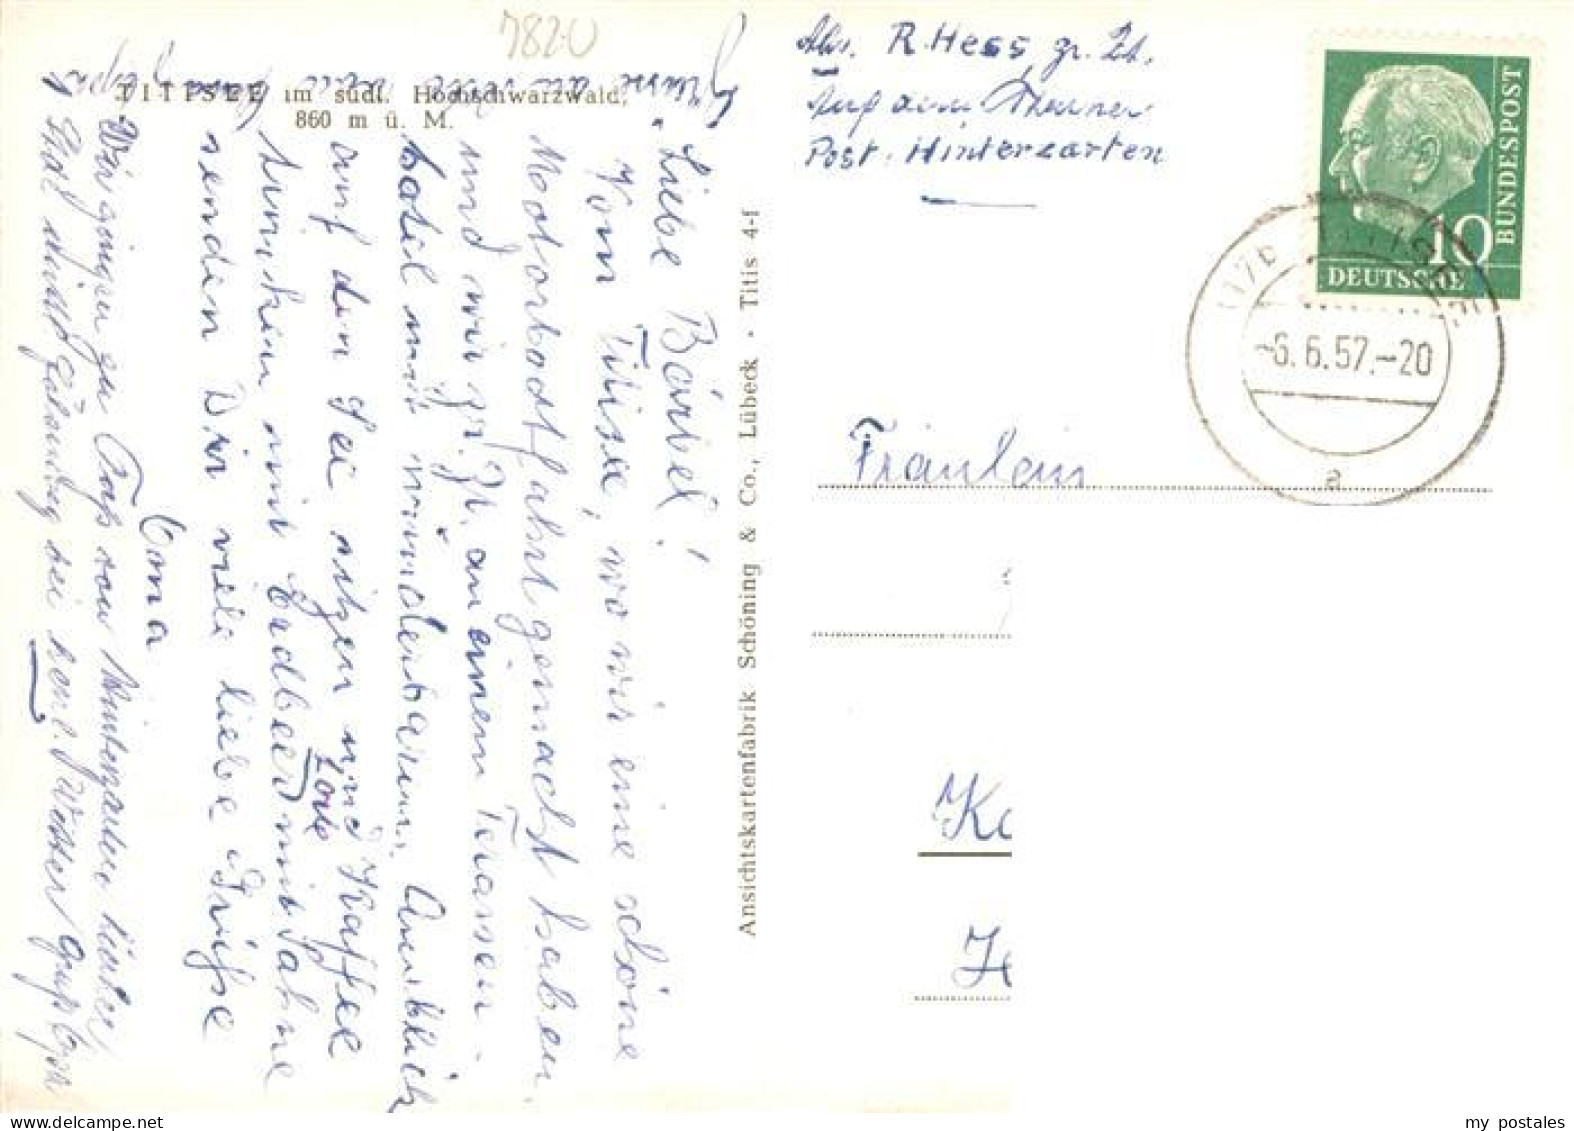 7820
TITISEE im südl. Hochschwarzwald,
860 m ü. M.
Liebe Bärbel!
Vom Titisee, wo wir eine schöne
Motorbootfahrt gemacht haben
und wir z. Zt. an einem Terassen-
hotel mit wunderbarem Ausblick
auf den See sitzen und Kaffee
trinken mit Erdbeer mit Sahne
Torte
senden Dir viele liebe Grüße
Oma
Wir gingen zu Fuß von Hinterzarten hierher
Gruß Opa
Ansichtskartenfabrik Schöning & Co., Lübeck · Titis 4-f
Abs. R. Hess, zr. Zt.
Auf dem Thurner
Post. Hinterzarten
BUNDESPOST
10
DEUTSCHE
TITISEE
-6.6.57.-20
a
Fräulein
my postales